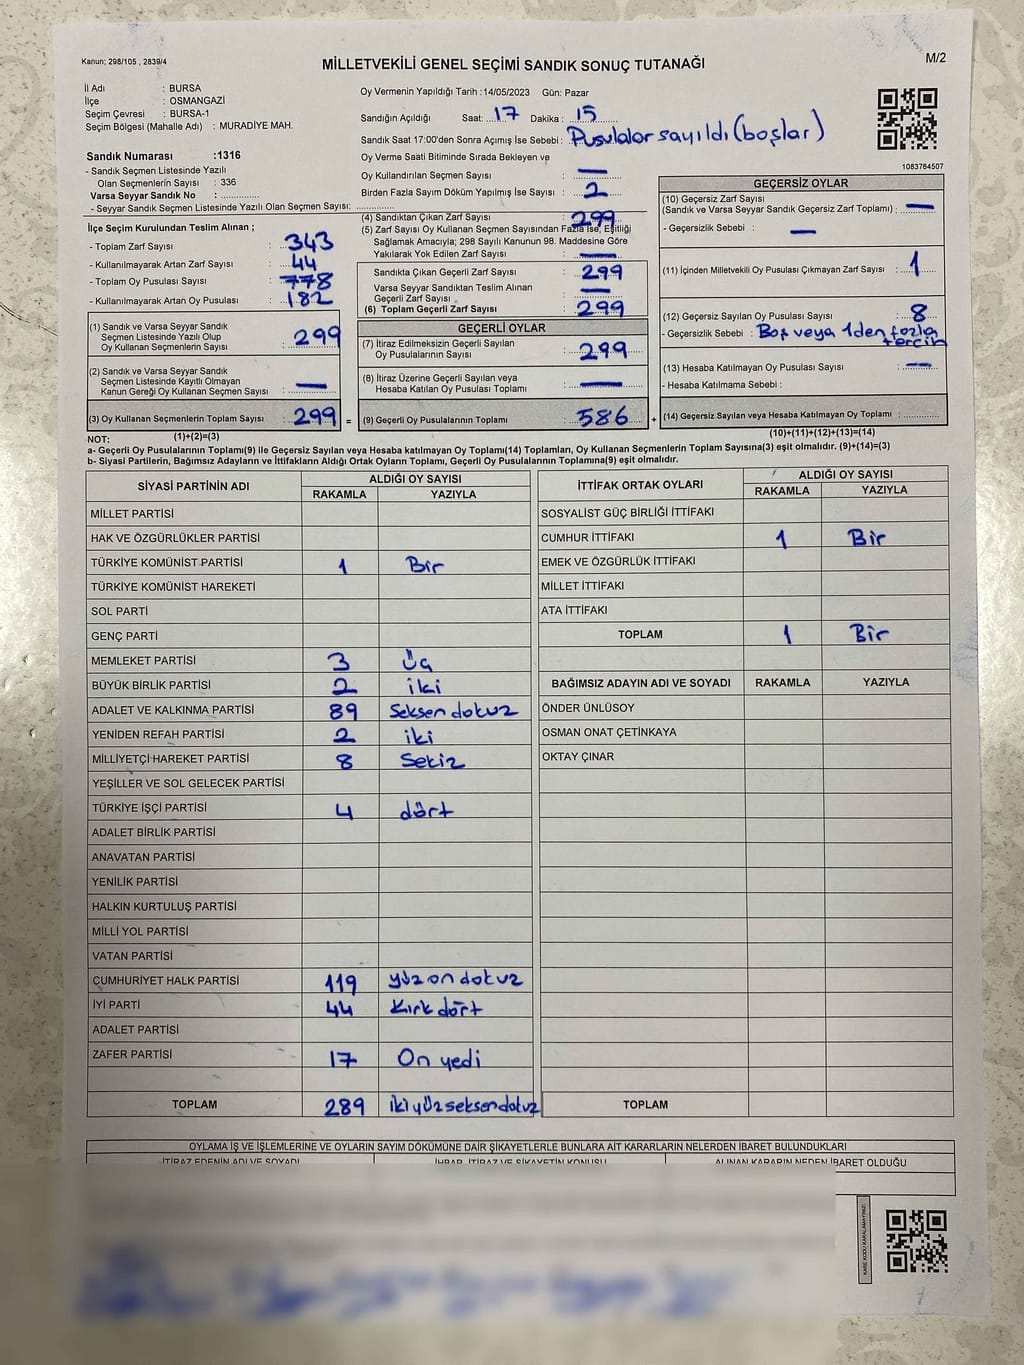 Kanun; 298/105 , 2839/4
MİLLETVEKİLİ GENEL SEÇİMİ SANDIK SONUÇ TUTANAĞI
M/2
İl Adı : BURSA
İlçe : OSMANGAZİ
Seçim Çevresi : BURSA-1
Seçim Bölgesi (Mahalle Adı) : MURADİYE MAH.
Oy Vermenin Yapıldığı Tarih :14/05/2023 Gün: Pazar
Sandığın Açıldığı Saat: 17 Dakika : 15
Sandık Saat 17:00'den Sonra Açımış İse Sebebi : Pusulalar sayıldı (boşlar)
Oy Verme Saati Bitiminde Sırada Bekleyen ve
Oy Kullandırılan Seçmen Sayısı : —
Birden Fazla Sayım Döküm Yapılmış İse Sayısı : 2
1083764507
Sandık Numarası :1316
- Sandık Seçmen Listesinde Yazılı
Olan Seçmenlerin Sayısı : 336
Varsa Seyyar Sandık No :
- Seyyar Sandık Seçmen Listesinde Yazılı Olan Seçmen Sayısı:
İlçe Seçim Kurulundan Teslim Alınan ;
- Toplam Zarf Sayısı : 343
- Kullanılmayarak Artan Zarf Sayısı : 44
- Toplam Oy Pusulası Sayısı : 778
- Kullanılmayarak Artan Oy Pusulası : 182
(1) Sandık ve Varsa Seyyar Sandık
Seçmen Listesinde Yazılı Olup
Oy Kullanan Seçmenlerin Sayısı : 299
(2) Sandık ve Varsa Seyyar Sandık
Seçmen Listesinde Kayıtlı Olmayan
Kanun Gereği Oy Kullanan Seçmen Sayısı : —
(3) Oy Kullanan Seçmenlerin Toplam Sayısı : 299 =
(1)+(2)=(3)
(4) Sandıktan Çıkan Zarf Sayısı : 299
(5) Zarf Sayısı Oy Kullanan Seçmen Sayısından Fazla İse, Eşitliği
Sağlamak Amacıyla; 298 Sayılı Kanunun 98. Maddesine Göre
Yakılarak Yok Edilen Zarf Sayısı : —
Sandıkta Çıkan Geçerli Zarf Sayısı : 299
Varsa Seyyar Sandıktan Teslim Alınan
Geçerli Zarf Sayısı : —
(6) Toplam Geçerli Zarf Sayısı : 299
GEÇERLİ OYLAR
(7) İtiraz Edilmeksizin Geçerli Sayılan
Oy Pusulalarının Sayısı : 299
(8) İtiraz Üzerine Geçerli Sayılan veya
Hesaba Katılan Oy Pusulası Toplamı : —
(9) Geçerli Oy Pusulalarının Toplamı : 586 +
GEÇERSİZ OYLAR
(10) Geçersiz Zarf Sayısı
(Sandık ve Varsa Seyyar Sandık Geçersiz Zarf Toplamı) : —
- Geçersizlik Sebebi : —
(11) İçinden Milletvekili Oy Pusulası Çıkmayan Zarf Sayısı : 1
(12) Geçersiz Sayılan Oy Pusulası Sayısı : 8
- Geçersizlik Sebebi : Boş veya 1den fazla
tercih
(13) Hesaba Katılmayan Oy Pusulası Sayısı : —
- Hesaba Katılmama Sebebi :
(14) Geçersiz Sayılan veya Hesaba Katılmayan Oy Toplamı :
(10)+(11)+(12)+(13)=(14)
NOT:
a- Geçerli Oy Pusulalarının Toplamı(9) ile Geçersiz Sayılan veya Hesaba katılmayan Oy Toplamı(14) Toplamları, Oy Kullanan Seçmenlerin Toplam Sayısına(3) eşit olmalıdır. (9)+(14)=(3)
b- Siyasi Partilerin, Bağımsız Adayların ve İttifakların Aldığı Ortak Oyların Toplamı, Geçerli Oy Pusulalarının Toplamına(9) eşit olmalıdır.
SİYASİ PARTİNİN ADI
ALDIĞI OY SAYISI
RAKAMLA YAZIYLA
MİLLET PARTİSİ
HAK VE ÖZGÜRLÜKLER PARTİSİ
TÜRKİYE KOMÜNİST PARTİSİ 1 Bir
TÜRKİYE KOMÜNİST HAREKETİ
SOL PARTİ
GENÇ PARTİ
MEMLEKET PARTİSİ 3 Üç
BÜYÜK BİRLİK PARTİSİ 2 iki
ADALET VE KALKINMA PARTİSİ 89 Seksen dokuz
YENİDEN REFAH PARTİSİ 2 iki
MİLLİYETÇİ HAREKET PARTİSİ 8 Sekiz
YEŞİLLER VE SOL GELECEK PARTİSİ
TÜRKİYE İŞÇİ PARTİSİ 4 dört
ADALET BİRLİK PARTİSİ
ANAVATAN PARTİSİ
YENİLİK PARTİSİ
HALKIN KURTULUŞ PARTİSİ
MİLLİ YOL PARTİSİ
VATAN PARTİSİ
CUMHURİYET HALK PARTİSİ 119 yüz on dokuz
İYİ PARTİ 44 Kırk dört
ADALET PARTİSİ
ZAFER PARTİSİ 17 On yedi
TOPLAM 289 iki yüz seksen dokuz
İTTİFAK ORTAK OYLARI
ALDIĞI OY SAYISI
RAKAMLA YAZIYLA
SOSYALİST GÜÇ BİRLİĞİ İTTİFAKI
CUMHUR İTTİFAKI 1 Bir
EMEK VE ÖZGÜRLÜK İTTİFAKI
MİLLET İTTİFAKI
ATA İTTİFAKI
TOPLAM 1 Bir
BAĞIMSIZ ADAYIN ADI VE SOYADI RAKAMLA YAZIYLA
ÖNDER ÜNLÜSOY
OSMAN ONAT ÇETİNKAYA
OKTAY ÇINAR
TOPLAM
OYLAMA İŞ VE İŞLEMLERİNE VE OYLARIN SAYIM DÖKÜMÜNE DAİR ŞİKAYETLERLE BUNLARA AİT KARARLARIN NELERDEN İBARET BULUNDUKLARI
İTİRAZ EDENİN ADI VE SOYADI İHBAR, İTİRAZ VE ŞİKAYETİN KONUSU ALINAN KARARIN NEDEN İBARET OLDUĞU
KARE KODU KARALAMAYINIZ!